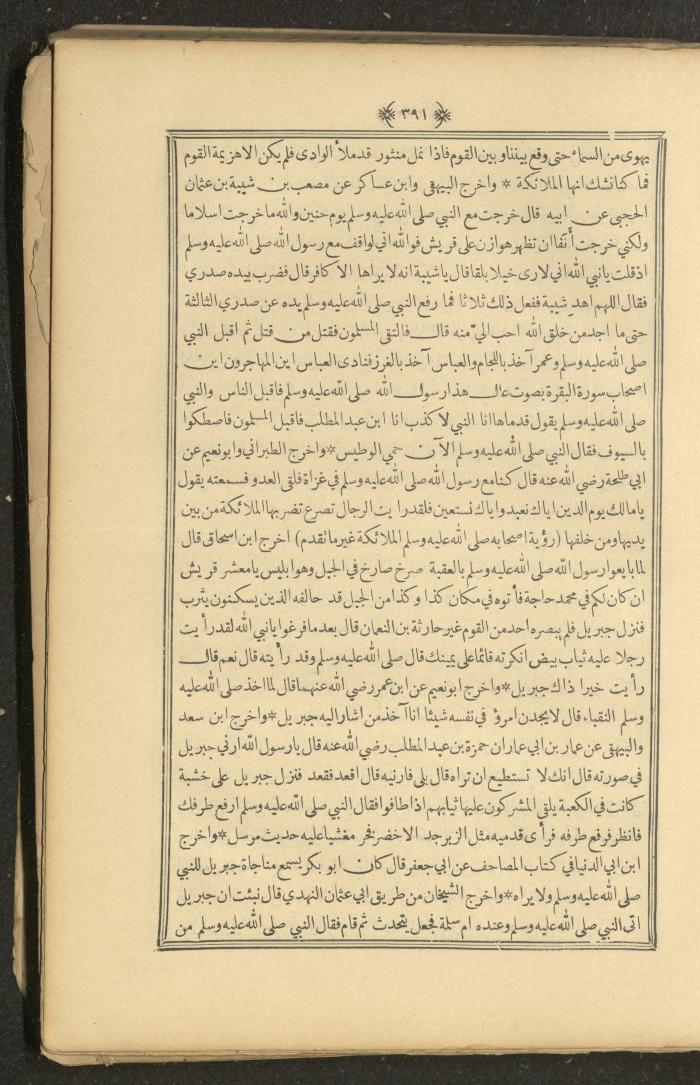 ٣٩١
يهوى من السماء حتى وقع بيننا وبين القوم فاذا نمل منثور قد ملأ الوادى فلم يكن الا هزيمة القوم
فما كنا نشك انها الملائكة * واخرج البيهقى وابن عساكر عن مصعب بن شيبة بن عثمان
الحجبى عن ابيه قال خرجت مع النبي صلى الله عليه وسلم يوم حنين والله ما خرجت اسلاما
ولكني خرجت أنفا ان تظهر هوازن على قريش فوالله اني لواقف مع رسول الله صلى الله عليه وسلم
اذ قلت يانبي الله اني لارى خيلا بلقا قال ياشيبة انه لا يراها الا كافر قال فضرب بيده صدري
فقال اللهم اهد شيبة ففعل ذلك ثلاثا فما رفع النبي صلى الله عليه وسلم يده عن صدري الثالثة
حتى ما اجد من خلق الله احب الي منه قال فالتقى المسلمون فقتل من قتل ثم اقبل النبي
صلى الله عليه وسلم وعمر آخذ باللجام والعباس آخذ بالغرز فنادى العباس اين المهاجرون اين
اصحاب سورة البقرة بصوت عال هذا رسول الله صلى الله عليه وسلم فاقبل الناس والنبي
صلى الله عليه وسلم يقول قدماها انا النبي لا كذب انا ابن عبد المطلب فاقبل المسلمون فاصطكوا
بالسيوف فقال النبي صلى الله عليه وسلم الآن حمي الوطيس * واخرج الطبراني وابو نعيم عن
ابي طلحة رضي الله عنه قال كنا مع رسول الله صلى الله عليه وسلم في غزاة فلقى العدو فسمعته يقول
يامالك يوم الدين اياك نعبد واياك نستعين فلقد رأيت الرجال تصرع تضربها الملائكة من بين
يديها ومن خلفها (رؤية اصحابه صلى الله عليه وسلم الملائكة غير ما تقدم) اخرج ابن اسحاق قال
لما بايعوا رسول الله صلى الله عليه وسلم بالعقبة صرخ صارخ في الجبل وهو ابليس يامعشر قريش
ان كان لكم في محمد حاجة فأتوه في مكان كذا وكذا من الجبل قد حالفه الذين يسكنون يثرب
فنزل جبريل فلم يبصره احد من القوم غير حارثة بن النعمان قال بعد ما فرغوا يانبي الله لقد رأيت
رجلا عليه ثياب بيض انكرته قائما على يمينك قال صلى الله عليه وسلم وقد رأيته قال نعم قال
رأيت خيرا ذاك جبريل * واخرج ابو نعيم عن ابن عمر رضي الله عنهما قال لما اخذ صلى الله عليه
وسلم النقباء قال لا يجدن امرؤ في نفسه شيئا انا آخذ من اشار اليه جبريل * واخرج ابن سعد
والبيهقى عن عمار بن ابي عمار ان حمزة بن عبد المطلب رضي الله عنه قال يارسول الله ارني جبريل
في صورته قال انك لا تستطيع ان تراه قال بلى فارنيه قال اقعد فقعد فنزل جبريل على خشبة
كانت في الكعبة يلقى المشركون عليها ثيابهم اذا طافوا فقال النبي صلى الله عليه وسلم ارفع طرفك
فانظر فرفع طرفه فرأى قدميه مثل الزبرجد الاخضر فخر مغشيا عليه حديث مرسل * واخرج
ابن ابي الدنيا في كتاب المصاحف عن ابي جعفر قال كان ابو بكر يسمع مناجاة جبريل للنبي
صلى الله عليه وسلم ولا يراه * واخرج الشيخان من طريق ابي عثمان النهدي قال نبئت ان جبريل
اتى النبي صلى الله عليه وسلم وعنده ام سلمة فجعل يتحدث ثم قام فقال النبي صلى الله عليه وسلم من